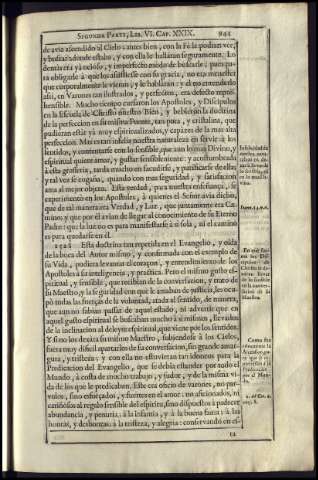 SEGUNDA PARTE, LIB. VI. CAP. XXIX.
de avia ascendido al Cielo: antes bien, con la Fè le podian ver,
y buscar à donde estava, y con ella le hallarian seguramente. Lo
demàs era yà ocioso, y imperfecto modo de buscarle; pues para
obligarle à que los assistiesse con su gracia, no era menester
que corporalmente le viessen, y le hablàran: y el no entenderlo
assi, en Varones tan ilustrados, y perfectos, era defecto reprehensible.
Mucho tiempo cursaron los Apostoles, y Discipulos
en la Escuela de Christo nuestro Bien, y bebieron la doctrina
de la perfeccion en su misma Fuente, tan pura, y cristalina, que
pudieran estàr yà muy espiritualizados, y capaces de la mas alta
perfeccion. Mas es tan infeliz nuestra naturaleza en servir à los
sentidos, y contentarse con lo sensible, que aun lo mas Divino, y
espiritual quiere amar, y gustar sensiblemente: y acostumbrada
à esta grosseria, tarda mucho en sacudirse, y purificarse de ella;
y tal vez se engaña, quando con mas seguridad, y satisfacion
ama al mejor objeto. Esta verdad, para nuestra enseñança, se
experimentò en los Apostoles, à quienes el Señor avia dicho,
que de tal manera era Verdad, y Luz, que juntamente era Camino;
y que por èl avian de llegar al conocimiento de su Eterno
Padre: que la luz no es para manifestarse à sì sola, ni el camino
es para quedarse en èl.
Esta doctrina tan repetida en el Evangelio, y oida
de la boca del Autor mismo, y confirmada con el exemplo de
su Vida, pudiera levantar el coraçon, y entendimiento de los
Apostoles à su inteligencia, y practica. Pero el mismo gusto espiritual,
y sensible, que recibian de la conversacion, y trato de
su Maestro, y la seguridad con que le amaban de justicia, les ocupò
todas las fuerças de la voluntad, atada al sentido, de manera,
que aun no sabian passar de aquel estado, ni advertir que en
aquel gusto espiritual se buscaban mucho à sì mismos, llevados
de la inclinacion al deleyte espiritual, que viene por los sentidos.
Y si no los dexàra su mismo Maestro, subiendose à los Cielos,
fuera muy dificil apartarlos de su conversacion, sin grande amargura,
y tristeza: y con ella no estuvieran tan idoneos para la
Predicacion del Evangelio, que se debia estender por todo el
Mundo, à costa de mucho trabajo, y sudor, y de la misma vida
de los que le predicaban. Este era oficio de varones, no parvulos,
sino esforçados, y fuertes en el amor: no aficionados, ni
cariñosos al regalo sensible del espiritu, sino dispuestos à padecer
abundancia, y penuria, à la infamia, y à la buena fama: à las
honras, y deshonras; à la tristeza, y alegria: conservando en es-
ta